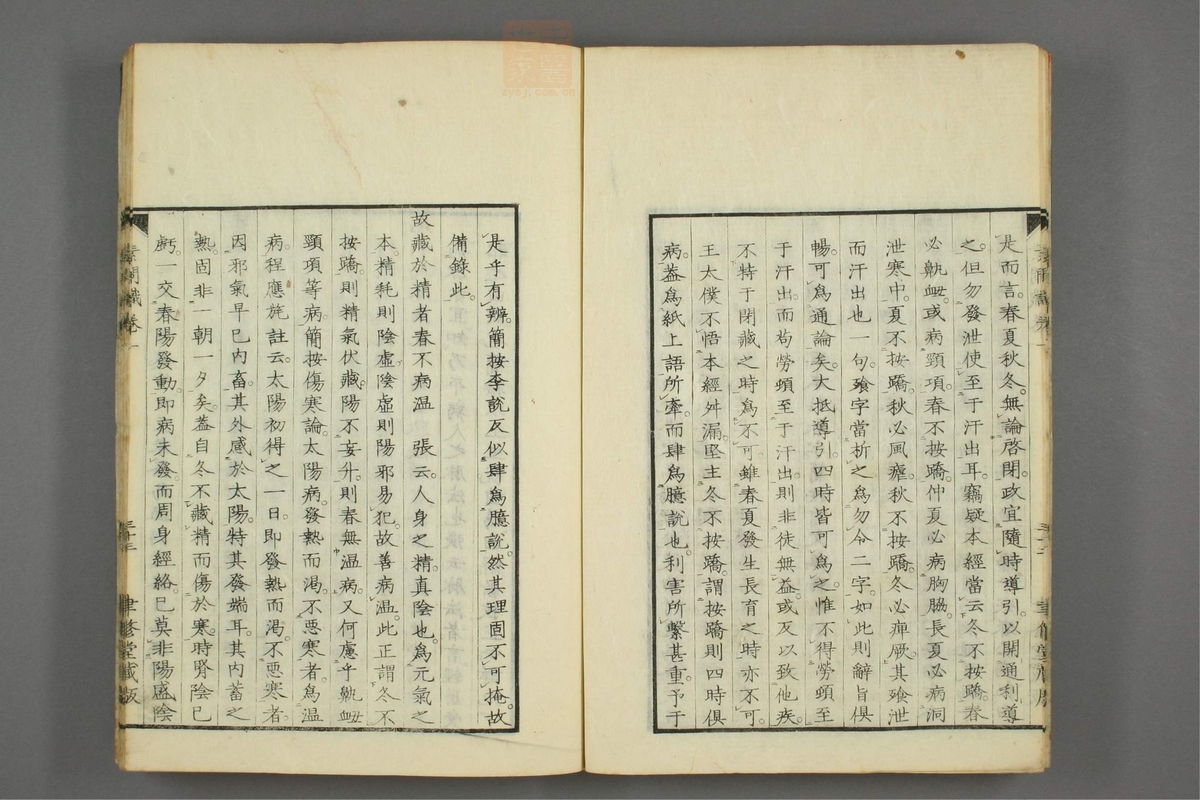 是而言。春夏秋冬。無論啓閉。政宜隨時導引。以開通利導
之。但勿發泄使至于汗出耳。竊疑本經當云。冬不按蹻。春
必鼽衄。或病頸項。春不按蹻。仲夏必病胸脇。長夏必病洞
泄寒中。夏不按蹻。秋必風瘧。秋不按蹻。冬必痺厥。其飱泄
而汗出也一句。飱字當析之爲勿令二字。如此則辭旨俱
暢。可爲通論矣。大抵導引。四時皆可爲之。惟不得勞頓至
于汗出。而苟勞頓至于汗出。則非徒無益。或反以致他疾。
不特于閉藏之時爲不可。雖春夏發生長育之時亦不可。
王太僕不悟本經舛漏。堅主冬不按蹻。謂按蹻則四時俱
病。蓋爲紙上語所牽。而肆爲臆說也。利害所繫甚重。予于
是乎有辨。簡按李說反似肆爲臆說。然其理固不可掩。故
備錄此。
故藏於精者春不病温 張云。人身之精。眞陰也。爲元氣之
本。精耗則陰虛。陰虛則陽邪易犯。故善病温。此正謂冬不
按蹻。則精氣伏藏。陽不妄升。則春無温病。又何慮乎鼽衄
頸項等病。簡按傷寒論。太陽病。發熱而渴。不惡寒者。爲温
病。程應旄註云。太陽初得之一日。即發熱而渴。不惡寒者。
因邪氣早已內畜。其外感於太陽。特其發端耳。其內蓄之
熱。固非一朝一夕矣。蓋自冬不藏精而傷於寒。時腎陰已
虧。一交春陽發動。即病未發。而周身經絡。已莫非陽盛陰
素問識卷一
聿修堂藏版